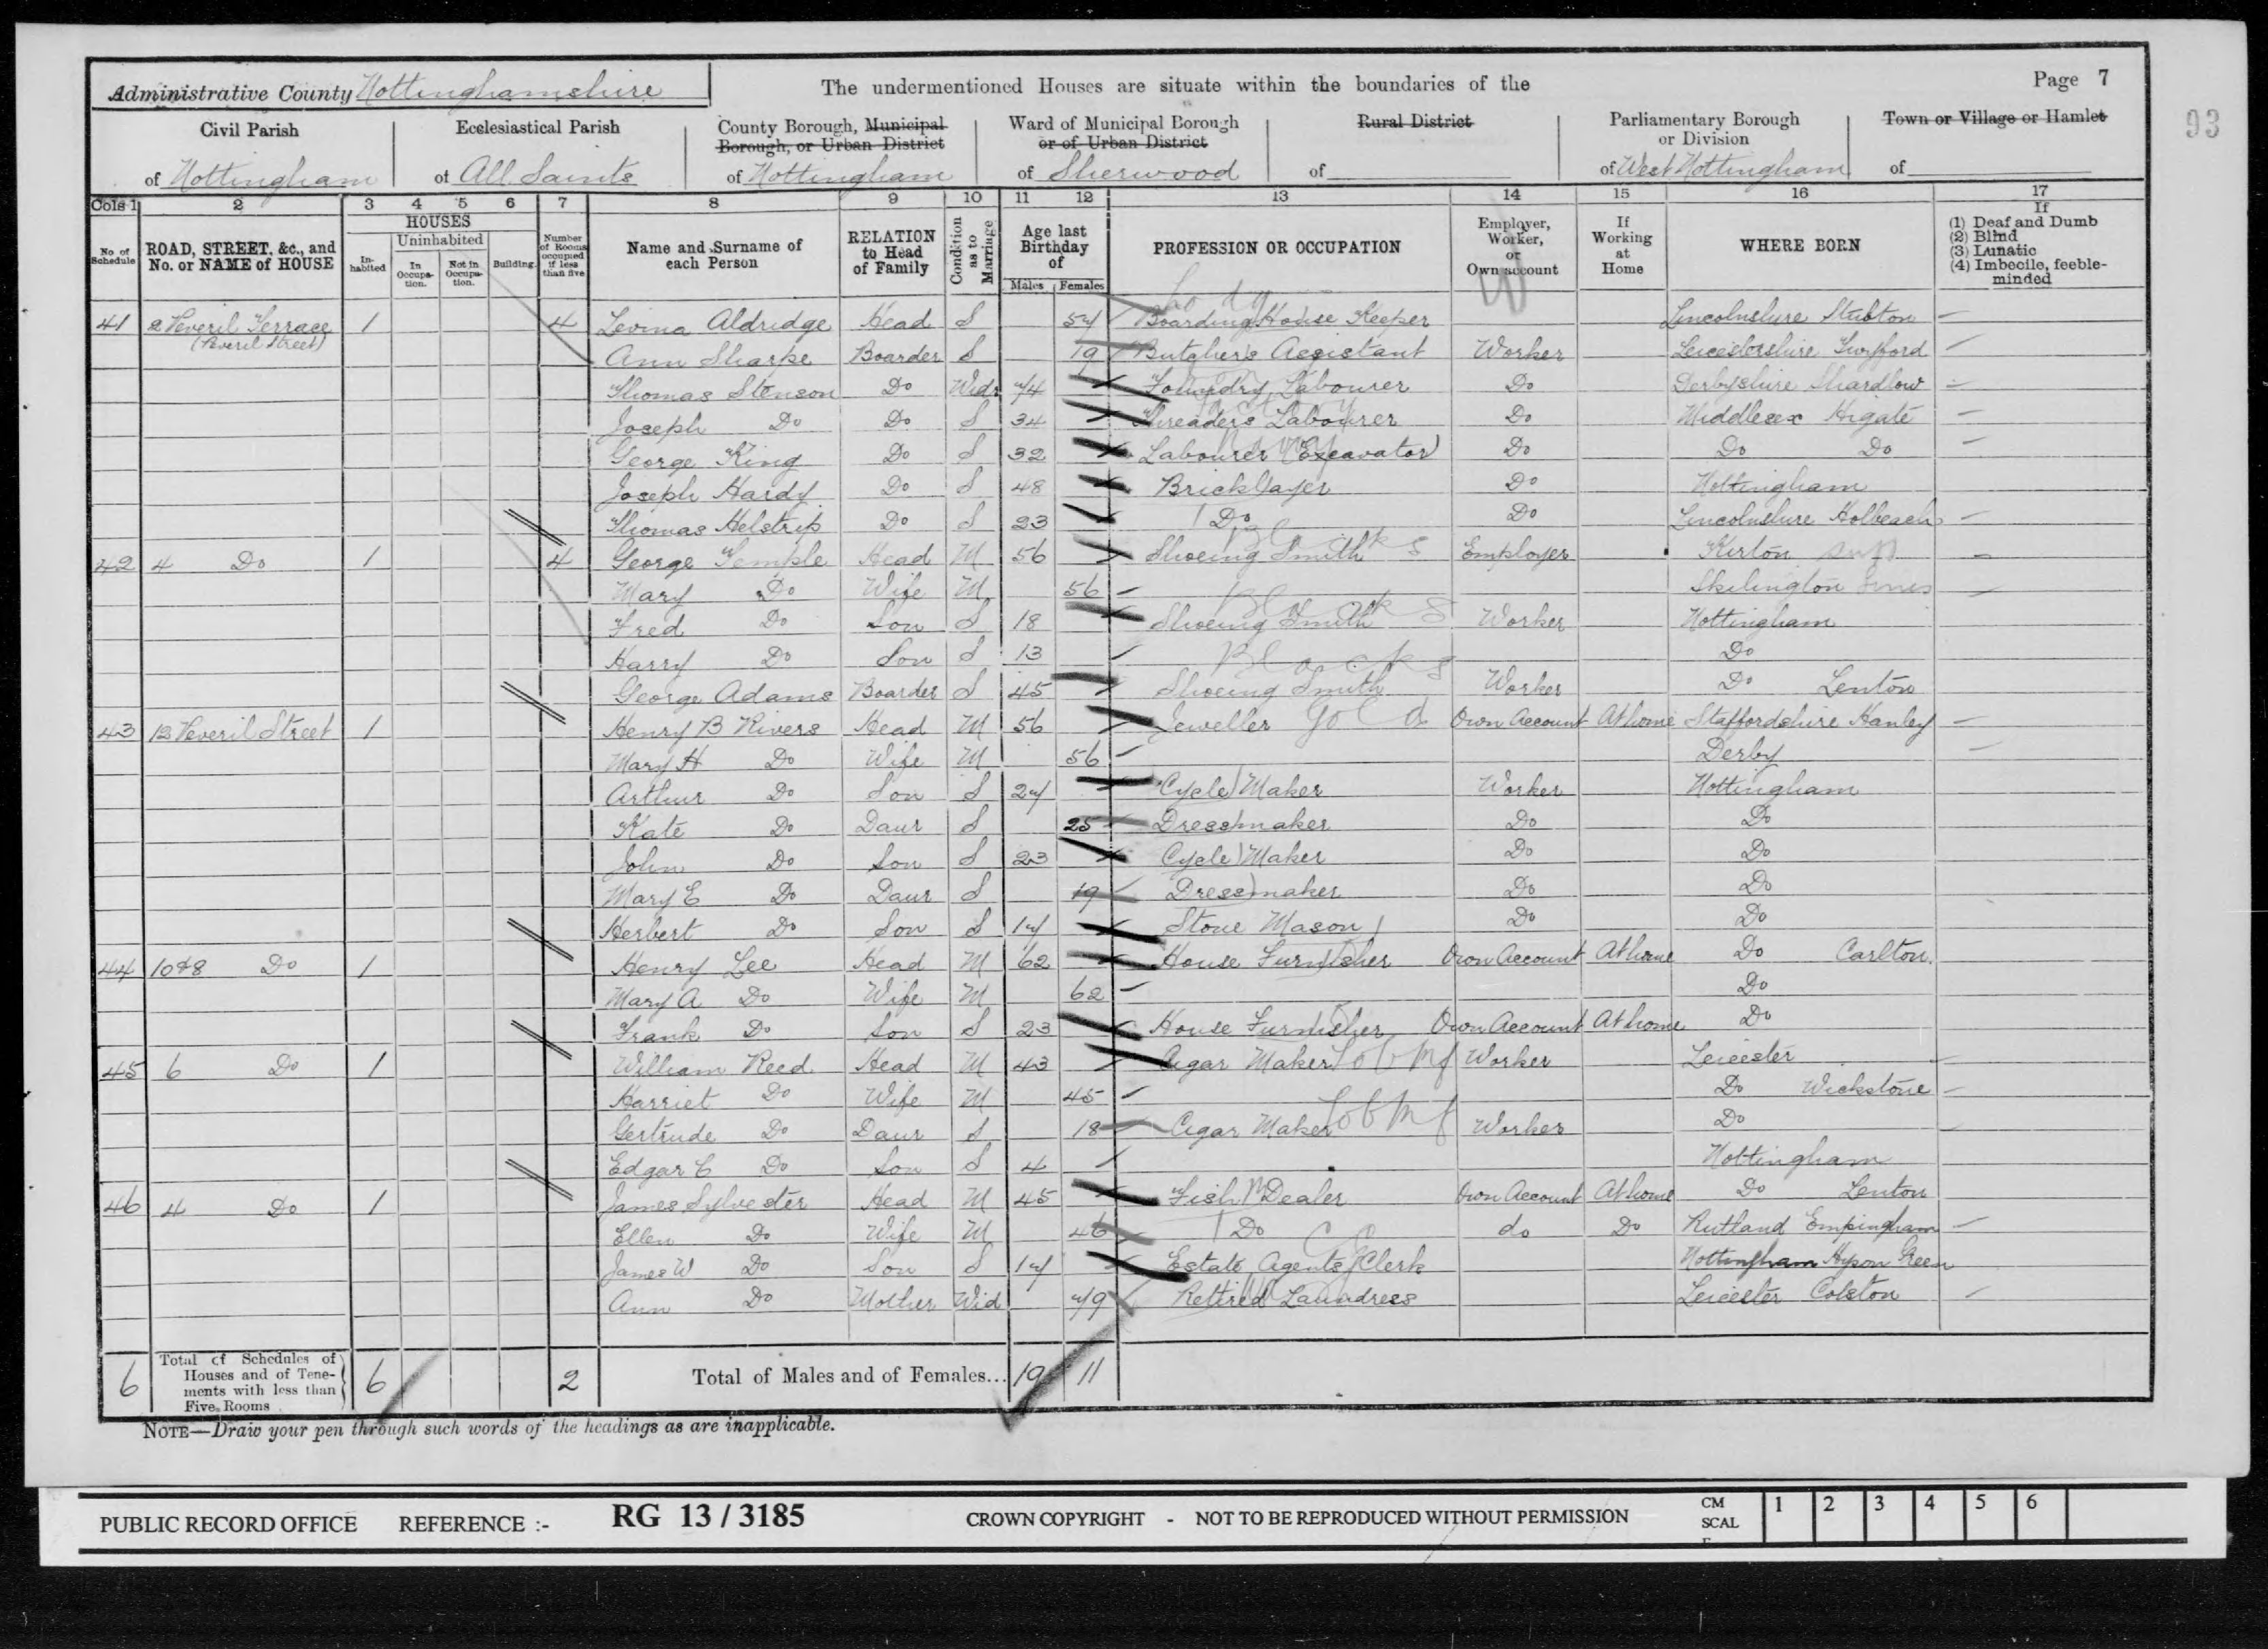 Administrative County Nottinghamshire The undermentioned Houses are situate within the boundaries of the Page 7
93
Civil Parish of Nottingham
Ecclesiastical Parish of All Saints
County Borough, Municipal Borough, or Urban District of Nottingham
Ward of Municipal Borough or of Urban District of Sherwood
Rural District of
Parliamentary Borough or Division of West Nottingham
Town or Village or Hamlet of
Cols 1 2 3 4 5 6 7 8 9 10 11 12 13 14 15 16 17
No of Schedule
ROAD, STREET, &c., and No. or NAME of HOUSE
HOUSES
Inhabited
Uninhabited
In Occupation.
Not in Occupation.
Building
Number of Rooms occupied if less than five
Name and Surname of each Person
RELATION to Head of Family
Condition as to Marriage
Age last Birthday of
Males Females
PROFESSION OR OCCUPATION
Employer, Worker, or Own account
If Working at Home
WHERE BORN
If
(1) Deaf and Dumb
(2) Blind
(3) Lunatic
(4) Imbecile, feeble-minded
41 2 Peveril Terrace (Peveril Street) 1 4 Levina Aldridge Head S 54 Boarding House Keeper Lincolnshire Stubton
Ann Sharpe Boarder S 19 Butcher's Assistant Worker Leicestershire Twyford
Thomas Stenson Do Widr 74 Foundry Labourer Do Derbyshire Shardlow
Joseph Do Do S 34 Threaders Labourer Do Middlesex Higate
George King Do S 32 Labourer (Excavator) Do Do Do
Joseph Hardy Do S 48 Bricklayer Do Nottingham
Thomas Helstrip Do S 23 Do Do Lincolnshire Holbeach
42 4 Do 1 4 George Temple Head M 56 Shoeing Smith Blacks Employer Kirton
Mary Do Wife M 56 Skilington Lincs
Fred Do Son S 18 Shoeing Smith Blacks Worker Nottingham
Harry Do Son S 13 Do
George Adams Boarder S 45 Shoeing Smith Blacks Worker Do Lenton
43 12 Peveril Street 1 Henry B Rivers Head M 56 Jeweller Gold Own Account At home Staffordshire Hanley
Mary H Do Wife M 56 Derby
Arthur Do Son S 27 Cycle Maker Worker Nottingham
Kate Do Daur S 25 Dressmaker Do Do
John Do Son S 23 Cycle Maker Do Do
Mary E Do Daur S 19 Dressmaker Do Do
Herbert Do Son S 17 Stone Mason Do Do
44 10 & 8 Do 1 Henry Lee Head M 62 House Furnisher Own Account At home Do Carlton
Mary A Do Wife M 62 Do
Frank Do Son S 23 House Furnisher Own Account At home Do
45 6 Do 1 William Reed Head M 43 Cigar Maker Tob Mf Worker Leicester
Harriet Do Wife M 45 Do Wickstone
Gertrude Do Daur S 18 Cigar Maker Tob Mf Worker Do
Edgar C Do Son S 4 Nottingham
46 4 Do 1 James Sylvester Head M 45 Fish Dealer Own Account At home Do Lenton
Ellen Do Wife M 46 Do do Do Rutland Empingham
James W Do Son S 17 Estate Agents Clerk Nottingham Hyson Green
Ann Do Mother Wid 79 Retired Laundress Leicester Colston
6 Total of Schedules of Houses and of Tenements with less than Five Rooms 6 2 Total of Males and of Females... 19 11
NOTE—Draw your pen through such words of the headings as are inapplicable.
PUBLIC RECORD OFFICE REFERENCE :- RG 13 / 3185 CROWN COPYRIGHT - NOT TO BE REPRODUCED WITHOUT PERMISSION CM SCALE 1 2 3 4 5 6